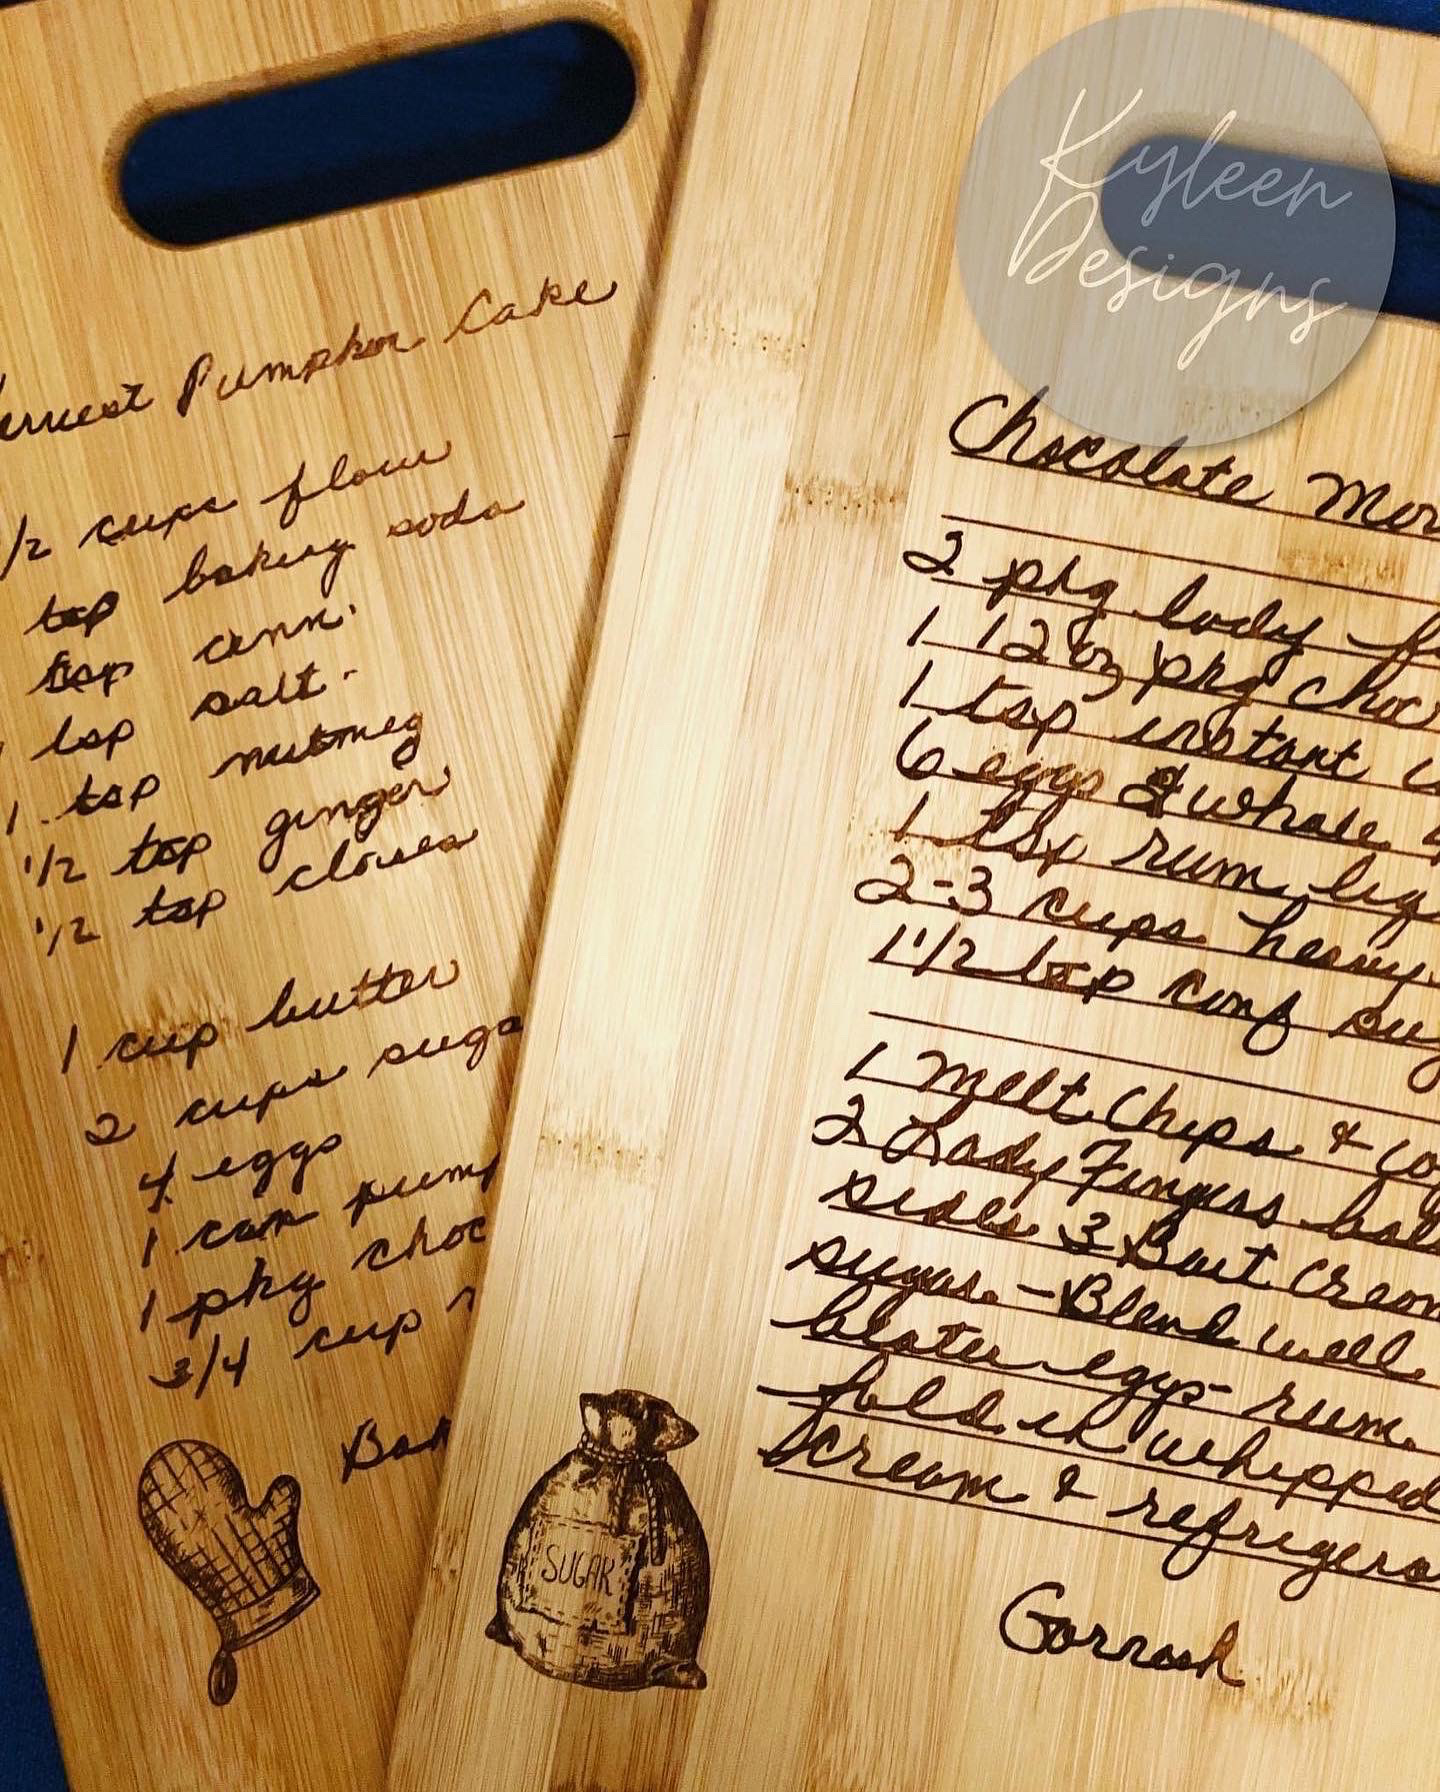 Kyleen
Designs
Pumpkin Cake
/2 cups flour
tsp baking soda
tsp cinn.
tsp salt.
1 tsp nutmeg
1/2 tsp ginger
1/2 tsp cloves
1 cup butter
2 cups suga
4 eggs
1 can pump
1 pkg choc
3/4 cup
SUGAR
Chocolate Mor
2 pkg lady f
1 12 oz pkg choc
1 tsp instant
6 eggs 2 whole 4
1 tsp rum
2-3 cups heavy
1 1/2 tsp conf sug
1 Melt Chips & co
2 Lady Fingers
sides 3 Beat Cream
sugar - Blend well
beaten eggs - rum
fold in whipped
cream & refrigera